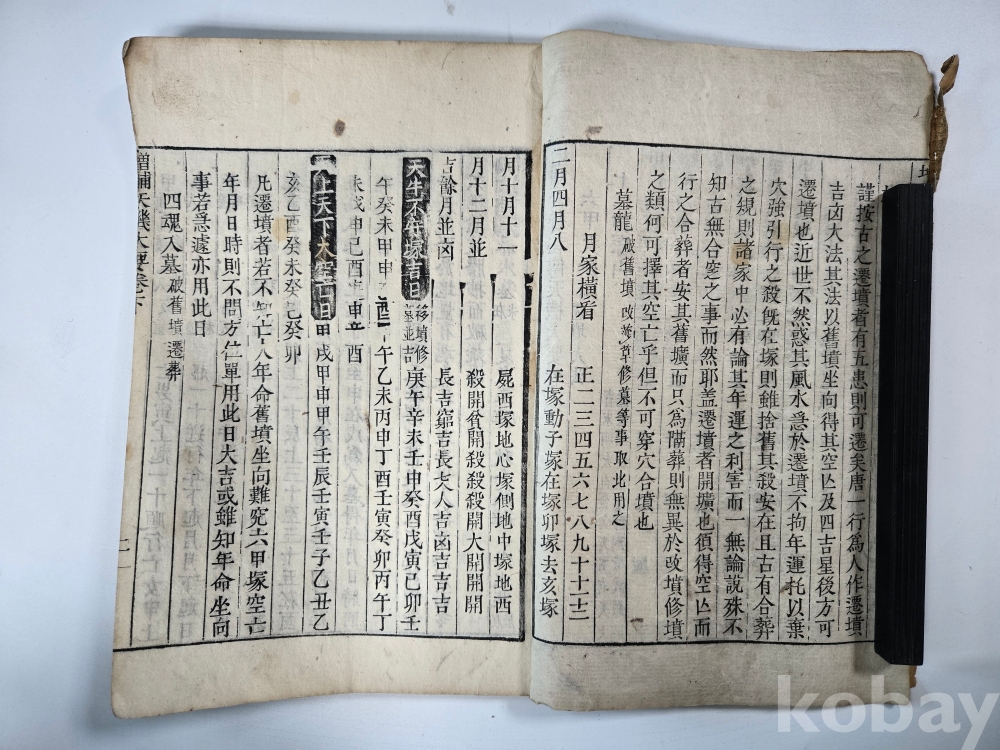 謹按古之遷墳者有五患則可遷矣唐一行爲人作遷墳
吉凶大法其法以舊墳坐向得其空亾及四吉星後方可
遷墳也近世不然惑其風水急於遷墳不拘年運托以棄
穴強引行之殺旣在塚則雖捨舊其殺安在且古有合葬
之規則諸家中必有論其年運之利害而一無論說殊不
知古無合窆之事而然耶盖遷墳者開壙也須得空亾而
行之合葬者安其舊壙而只爲隣葬則無異於改墳修墳
之類何可擇其空亡乎但不可穿穴合墳也
墓龍 破舊墳 改莎草修墓等事取此用之
月家橫看 正二三四五六七八九十十一十二
二月四月八 在塚動子塚在塚卯塚去亥塚
月十月十一 屍西塚地心塚側地中塚地西
月十二月並 殺開貧開殺殺殺開大開開開
吉餘月並凶 長吉竆吉長老人吉凶吉吉吉
天牛不守塚吉日 移墳修墓並吉 庚午辛未壬申癸酉戊寅己卯壬
午癸未甲申 乙酉 甲午乙未丙申丁酉壬寅癸卯丙午丁
未戊申己酉 申辛酉
天上天下大空亡日 甲戌甲申甲午壬辰壬寅壬子乙丑乙
亥乙酉癸未癸巳癸卯
凡遷墳者若不知亡人年命舊墳坐向難究六甲塚空亡
年月日時則不問方位單用此日大吉或雖知年命坐向
事若急遽亦用此日
四魂入墓 破舊墳 遷葬
增補天機大要卷下
kobay